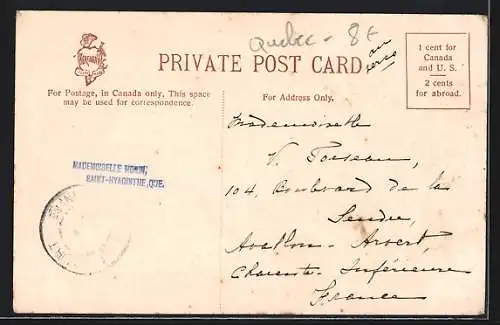 Quebec - 8 €
au
verso
PRIVATE POST CARD
1 cent for
Canada
and U. S.
2 cents
for abroad.
For Postage, in Canada only, This space
may be used for correspondence.
For Address Only.
Mademoiselle
V.
104, Boulevard de la
Seudre,
Avallon - Arvert,
Charente - Inférieure
France
MADEMOISELLE MORIN,
SAINT-HYACINTHE, QUE.